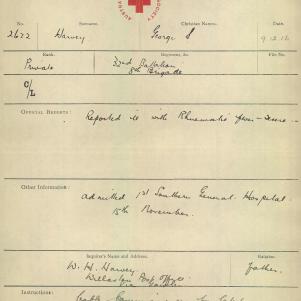 AUSTRA
SOCIETY
No. Surname. Christian Names. Date.
2622 Harvey George S 9.12.16
Rank. Regiment, &c. File No.
Private 32nd Battalion
8th Brigade
C/L
OFFICIAL REPORTS: Reported ill with Rheumatic fever - severe -
Other Information: admitted 1st Southern General Hospital
15th November.
Inquirer's Name and Address. Relation.
W. H. Harvey Father.
Willaston Post Office
via
Instructions: Cable